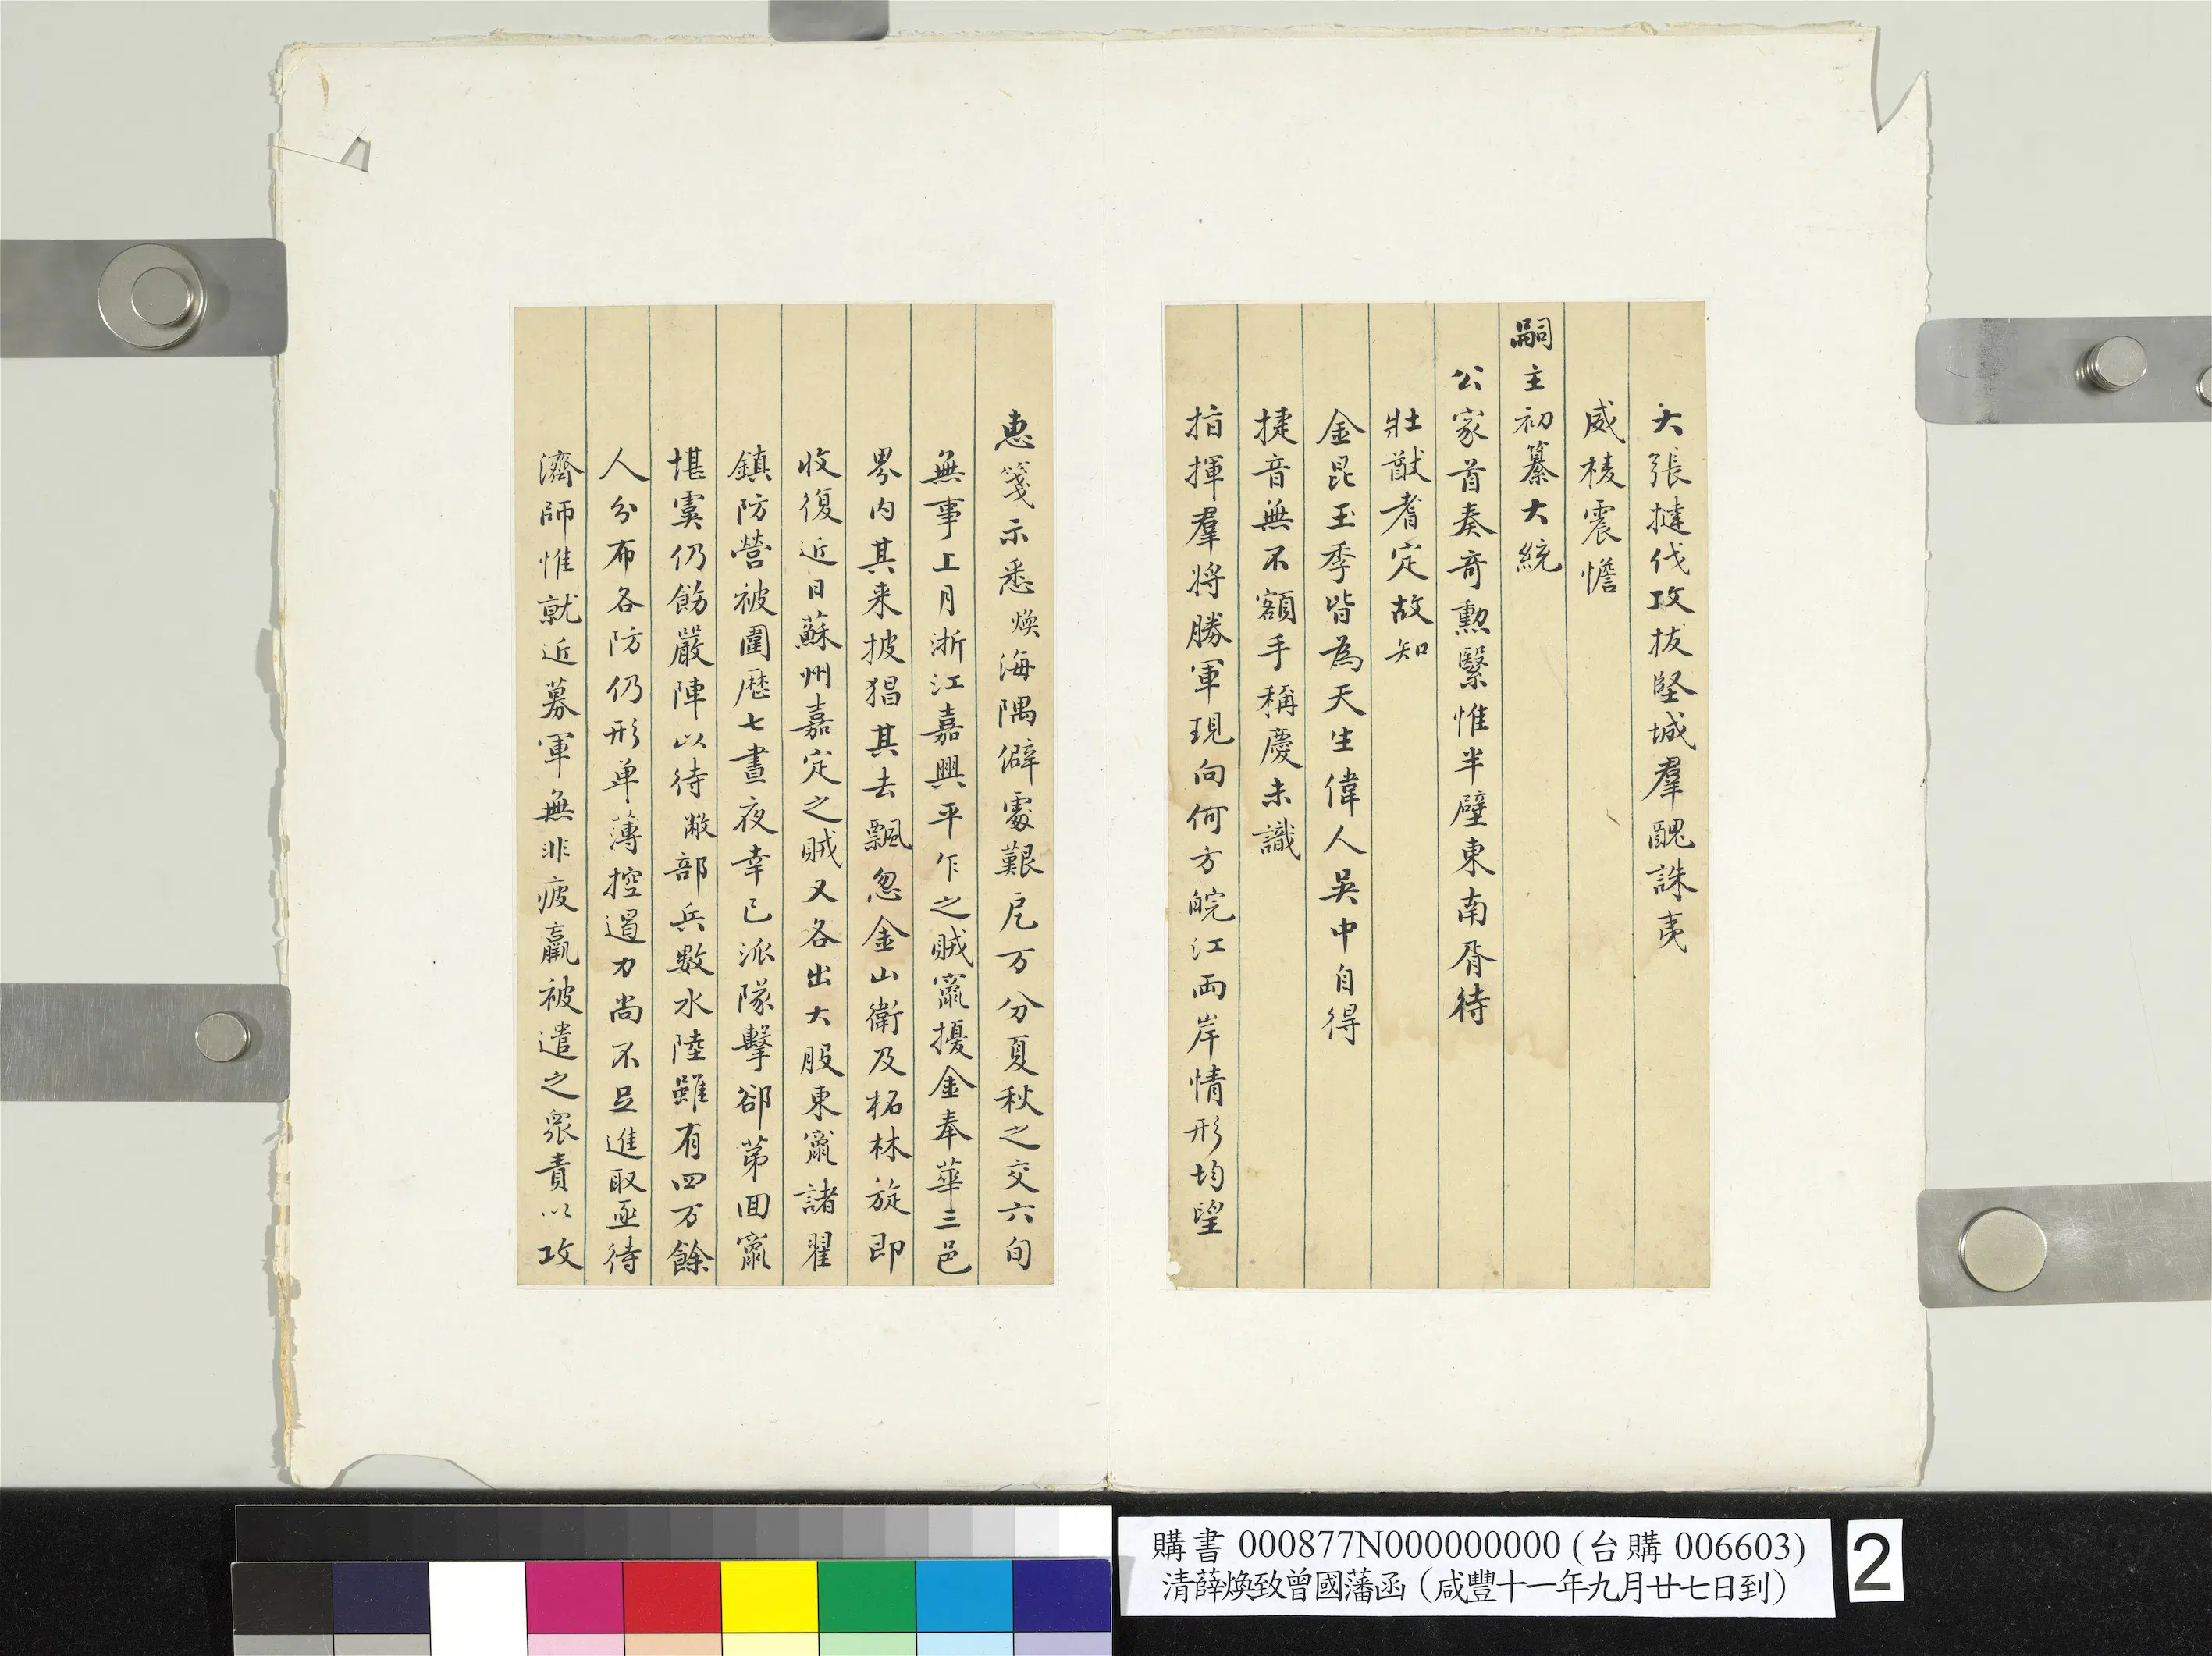 大張撻伐攻拔堅城羣醜誅夷
威棱震憺
嗣主初纂大統
公家首奏奇勳緊惟半壁東南胥待
壯猷耆定故知
金昆玉季皆為天生偉人吳中自得
捷音無不額手稱慶未識
指揮羣將勝軍現向何方皖江兩岸情形均望
惠箋示悉煥海隅僻處艱危万分夏秋之交六旬
無事上月浙江嘉興平乍之賊竄擾金奉華三邑
界内其来披猖其去飄忽金山衛及柘林旋即
收復近日蘇州嘉定之賊又各出大股東竄諸翟
鎮防營被圍歷七晝夜幸已派隊擊卻苐回竄
堪虞仍飭嚴陣以待敝部兵數水陸雖有四万餘
人分布各防仍形单薄控遏力尚不足進取亟待
濟師惟就近募軍無非疲羸被遣之衆責以攻
購書 000877N000000000 (台購 006603)
清薛煥致曾國藩函（咸豐十一年九月廿七日到）
2